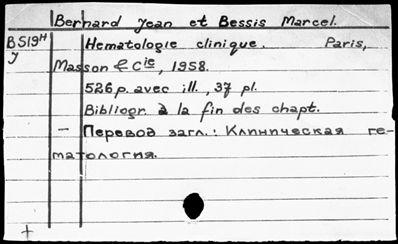 Bernard Jean et Bessis Marcel.
B519ᴴ Hematologie clinique. Paris,
J
Masson & Cie, 1958.
526p. avec ill., 37 pl.
Bibliogr. à la fin des chapt.
— Перевод загл.: Клиническая ге-
матология.